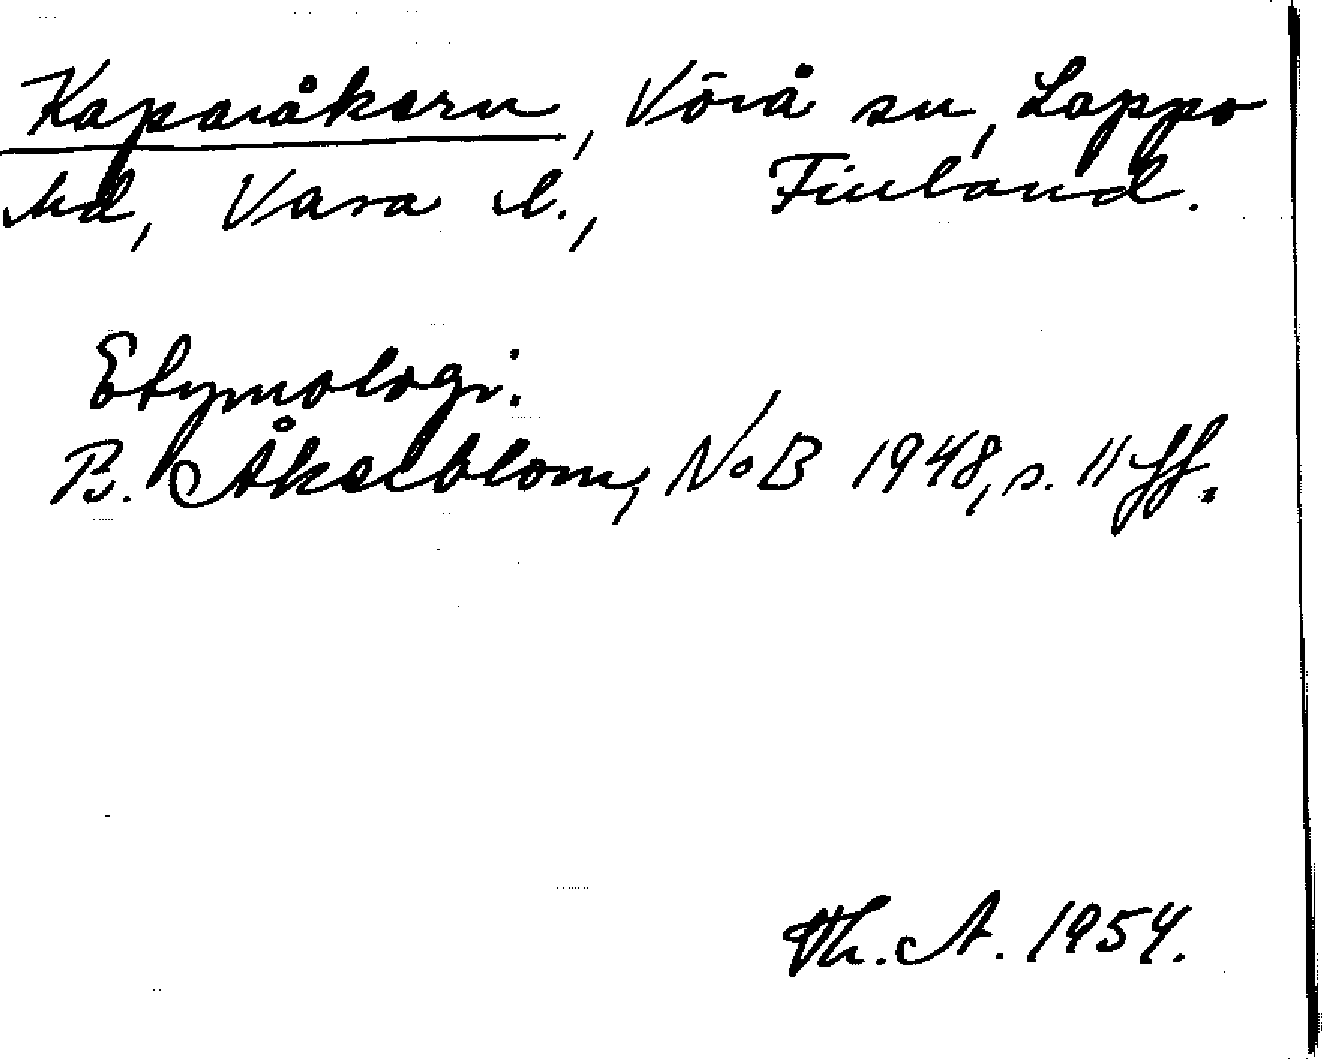 Kaparåkern, Vörå sn, Lappo
hd, Vasa l., Finland.
Etymologi:
B. Åkerblom, NoB 1948, s. 11 ff.
Th. A. 1954.